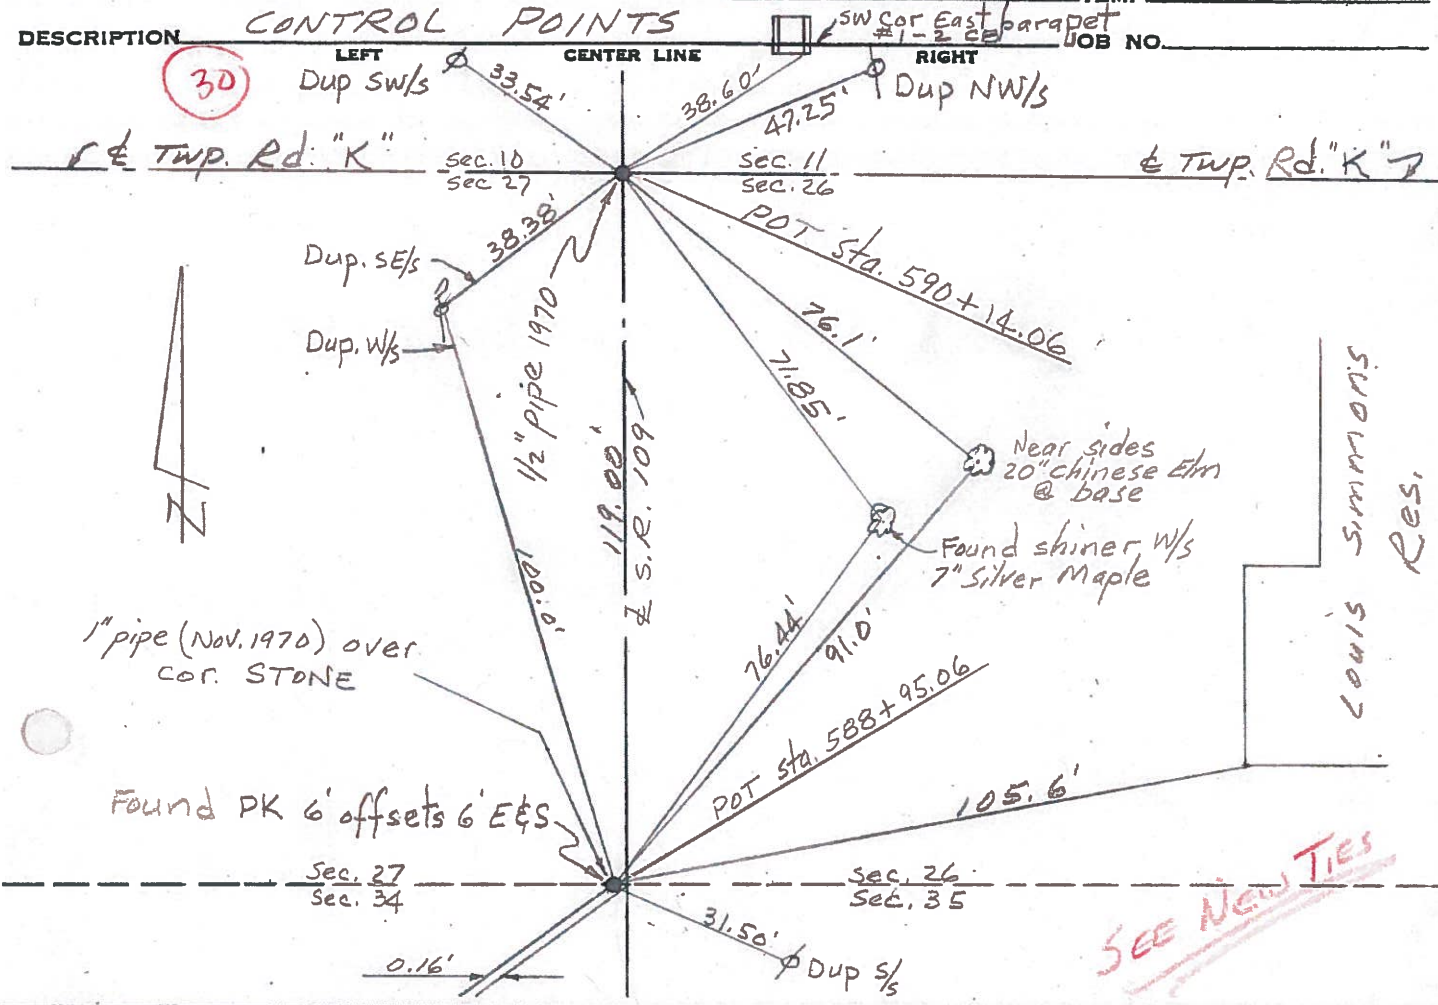 DESCRIPTION CONTROL POINTS
SW cor East parapet
#1-2 CB
JOB NO.
LEFT CENTER LINE RIGHT
30
Dup SW/s
33.54'
38.60'
47.25'
Dup NW/s
℄ Twp. Rd. "K"
Sec. 10
Sec 27
Sec. 11
Sec. 26
℄ Twp. Rd. "K"
38.38'
Dup. SE/s
Dup. W/s
1/2" pipe 1970
POT sta. 590+14.06
76.1'
71.85'
119.00'
℄ S.R. 109
Near sides
20" chinese Elm
@ base
Found shiner W/s
7" Silver Maple
Louis Simmons
Res.
N
100.0'
76.44'
91.0'
1" pipe (Nov. 1970) over
cor. STONE
POT sta. 588+95.06
105.6'
Found PK 6' offsets 6' E&S
Sec. 27
Sec. 34
Sec. 26
Sec. 35
SEE NEW TIES
31.50'
Dup S/s
0.16'